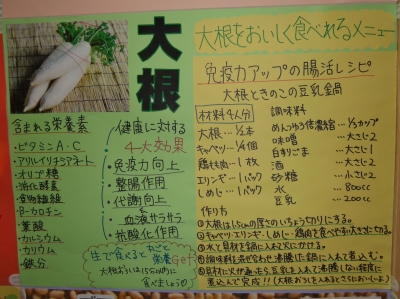 大根
大根をおいしく食べれるメニュー
含まれる栄養素
・ビタミンA・C
・アリルイソチアネート
・オリゴ糖
・消化酵素
・食物繊維
・β-カロチン
・葉酸
・カルシウム
・カリウム
・鉄分
健康に対する
4大効果
・免疫力向上
・整腸作用
・代謝向上
と
血液サラサラ
・抗酸化作用
生で食べると丸ごと
栄養Get!
大根おろしは15分以内に
食べましょう
免疫力アップの腸活レシピ
大根ときのこの豆乳鍋
材料4人分
大根…½本
キャベツ…¼個
鶏もも肉…1枚
エリンギ…1パック
しめじ…1パック
調味料
めんつゆ3倍濃縮…⅓カップ
味噌…大さじ2
白すりごま…大さじ1
酒…大さじ2
砂糖…小さじ2
水…800cc
豆乳…200cc
作り方
①大根は1.5cmの厚さのいちょう切りにする。
②キャベツ・エリンギ・しめじ・鶏肉を食べやすい大きさに切る。
③水と具材を鍋に入れ火にかける。
④調味料を混ぜ合わせ沸騰した鍋に入れて煮込む。
⑤具材に火が通ったら豆乳を入れて沸騰しない程度に
煮込んで完成!!(大根おろしを入れるとさらにおいしいよ)